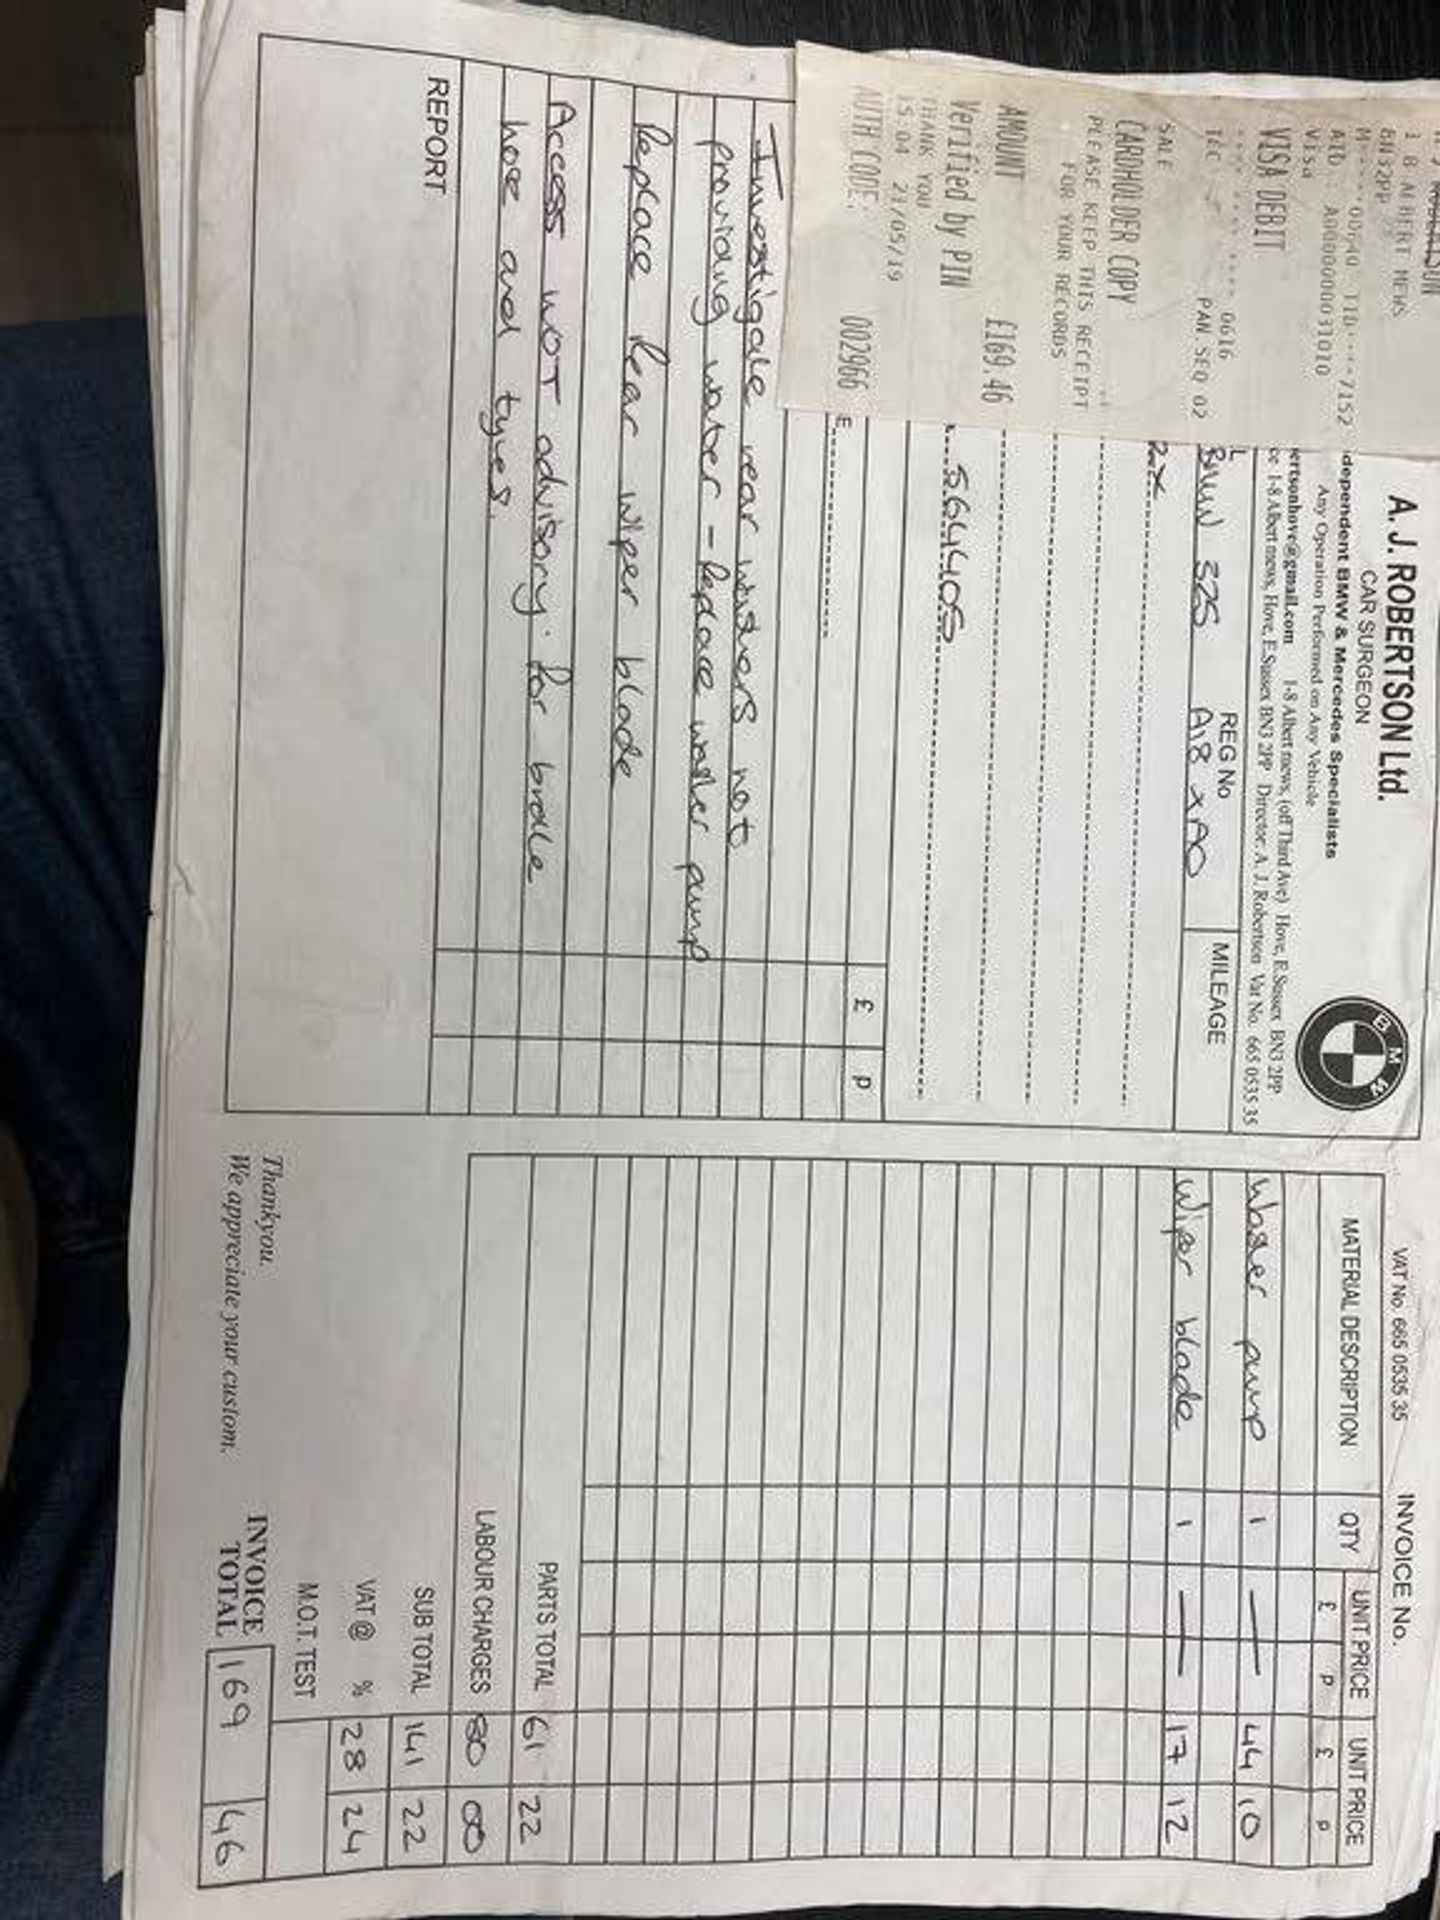 1 B ALBERT MEWS
BN32PP
M****0640 TID****7152
AID : A0000000031010
Visa
VISA DEBIT
**** **** **** 0616
PAN.SEQ 02
SALE
CARDHOLDER COPY
PLEASE KEEP THIS RECEIPT
FOR YOUR RECORDS
AMOUNT £169.46
Verified by PIN
THANK YOU
15:04 21/05/19
AUTH CODE: 002966
A. J. ROBERTSON Ltd.
CAR SURGEON
dependent BMW & Mercedes Specialists
Any Operation Performed on Any Vehicle
ertsonhove@gmail.com 1-8 Albert mews, (off Third Ave) Hove, E.Sussex BN3 2PP
ce 1-8 Albert mews, Hove, E.Sussex BN3 2PP Director: A. J. Robertson Vat No. 665 0535 35
BMW
REG No
MILEAGE
BMW 325 A18 XAO
564405
E
£ p
Investigate rear washers not
providing water - Replace washer pump
Replace Rear wiper blade
Access MOT advisory. for brake
hose and tyres.
REPORT
VAT No. 665 0535 35 INVOICE No.
MATERIAL DESCRIPTION QTY UNIT PRICE UNIT PRICE
£ p £ p
Washer pump 1 — 44 10
Wiper blade 1 — 17 12
PARTS TOTAL 61 22
LABOUR CHARGES 80 00
SUB TOTAL 141 22
VAT @ % 28 24
M.O.T. TEST
Thankyou.
We appreciate your custom.
INVOICE
TOTAL 169 46